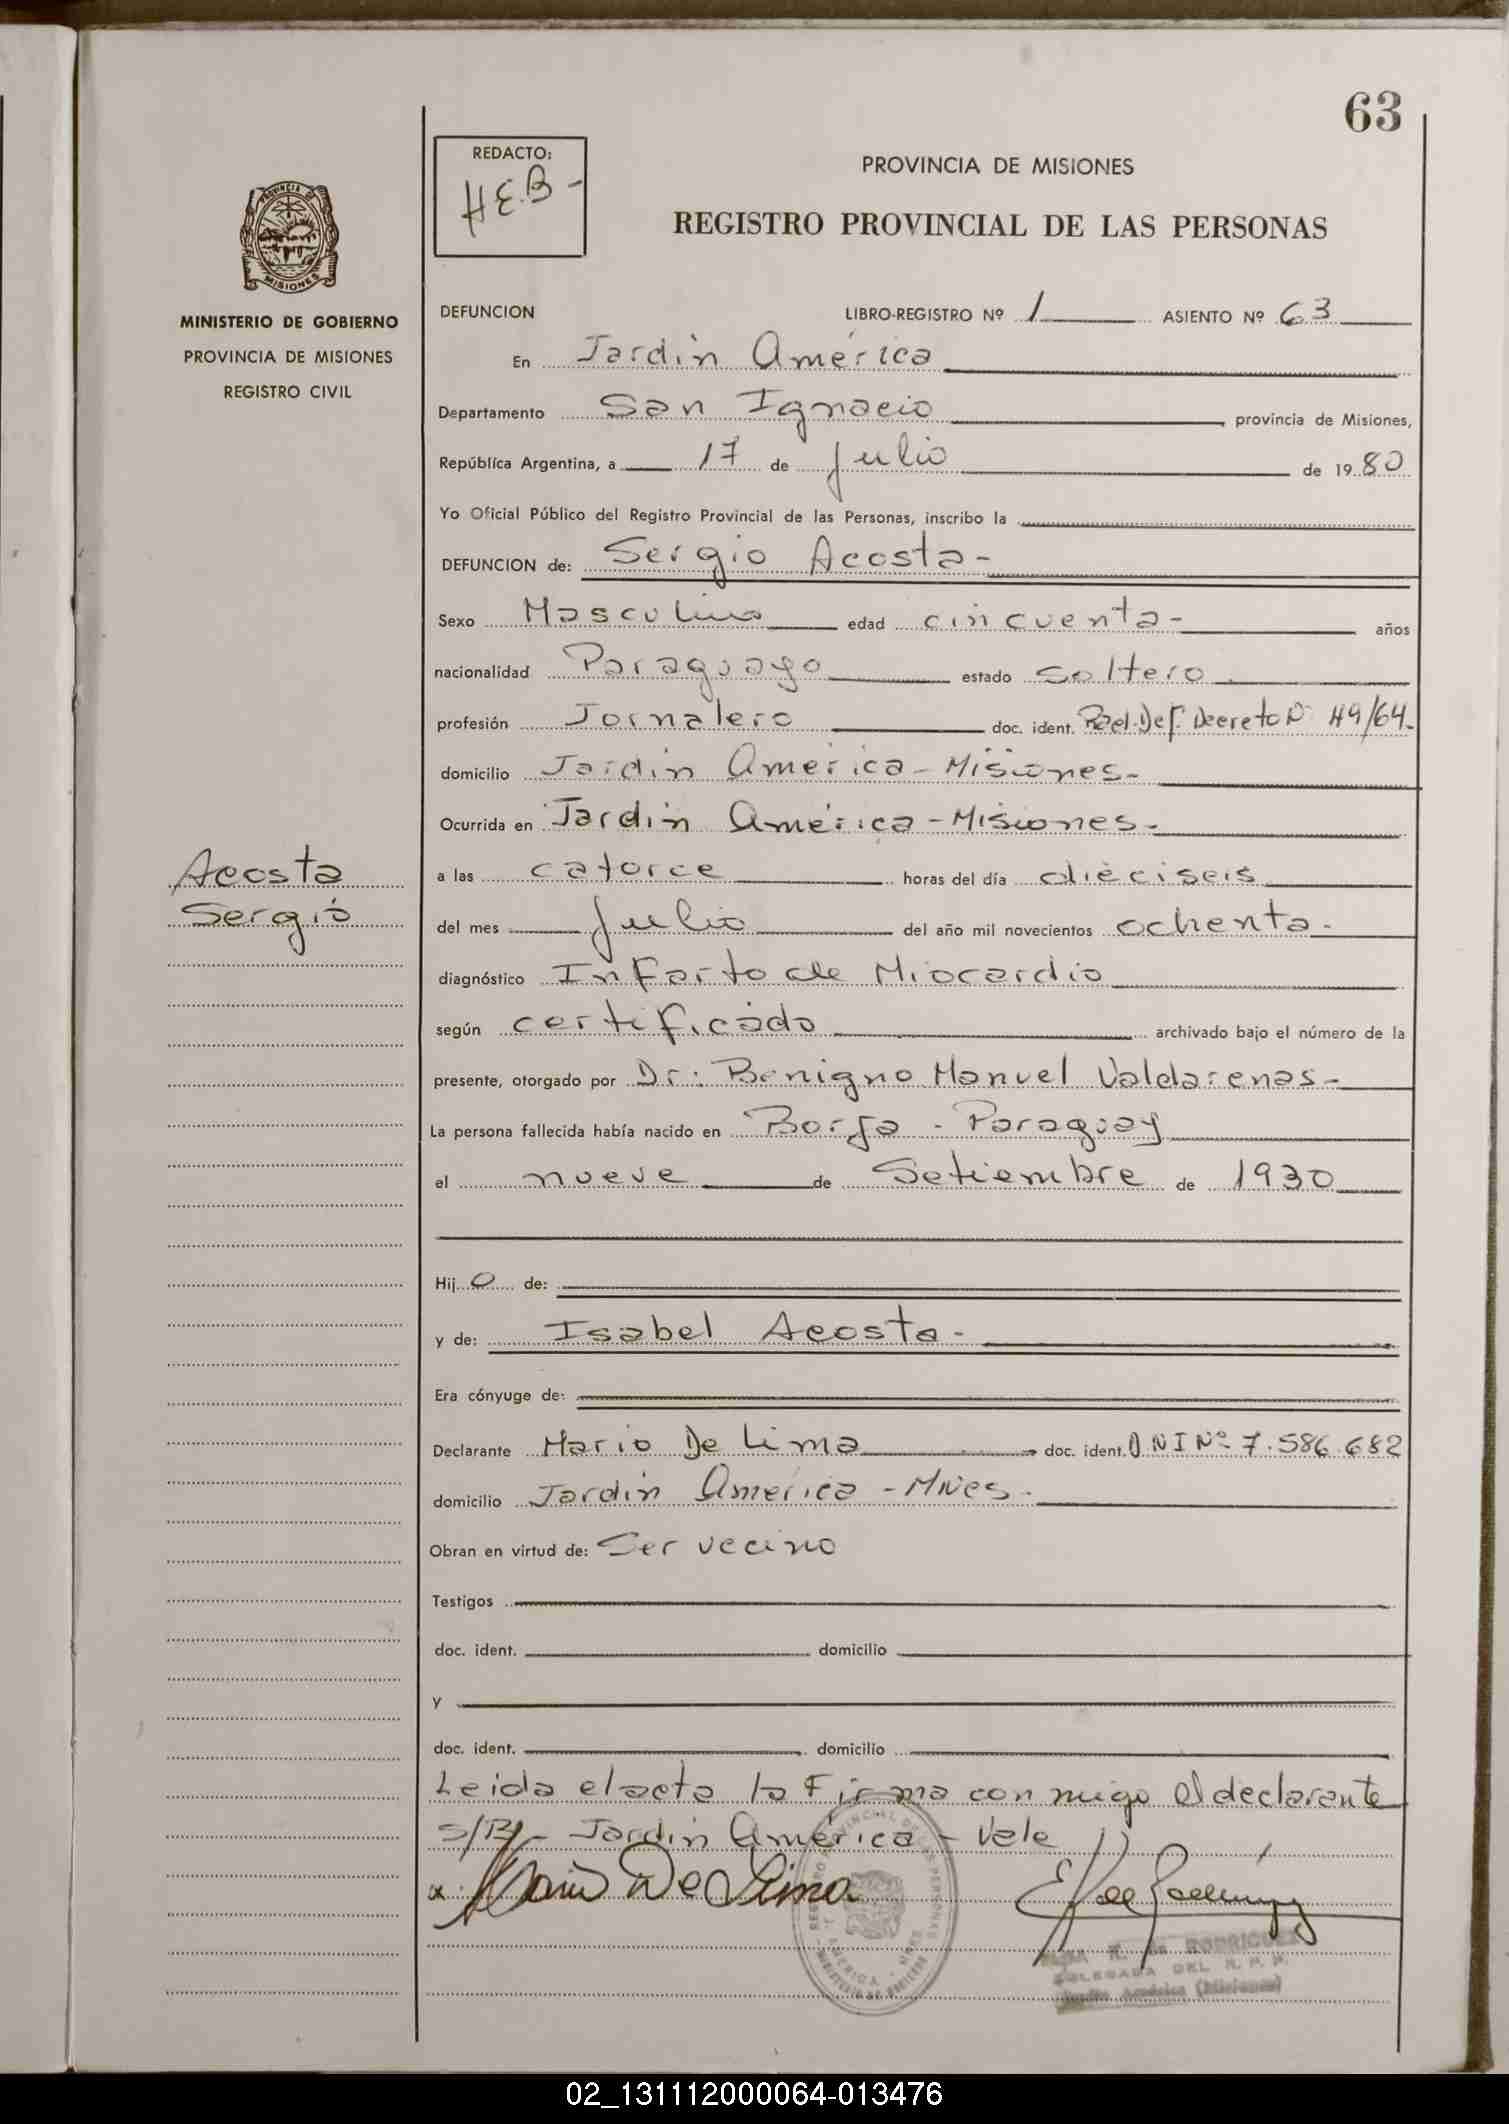 63
REDACTO:
H.E.B-
PROVINCIA DE MISIONES
REGISTRO PROVINCIAL DE LAS PERSONAS
PROVINCIA DE
MISIONES
MINISTERIO DE GOBIERNO
PROVINCIA DE MISIONES
REGISTRO CIVIL
DEFUNCION LIBRO-REGISTRO Nº 1 ASIENTO Nº 63
En Jardin América
Departamento San Ignacio provincia de Misiones,
República Argentina, a 17 de julio de 1980
Yo Oficial Público del Registro Provincial de las Personas, inscribo la
DEFUNCION de: Sergio Acosta-
Sexo Masculino edad cincuenta- años
nacionalidad Paraguayo estado soltero
profesión Jornalero doc. ident. Rad. Def. Decreto Nº 49/64-
domicilio Jardin América-Misiones-
Ocurrida en Jardin América-Misiones-
Acosta
Sergio
a las catorce horas del día dieciseis
del mes julio del año mil novecientos ochenta-
diagnóstico Infarto de Miocardio
según certificado archivado bajo el número de la
presente, otorgado por Dr: Benigno Manuel Valdarenas-
La persona fallecida había nacido en Borja - Paraguay
el nueve de Setiembre de 1930
Hijo de:
y de: Isabel Acosta-
Era cónyuge de:
Declarante Mario De Lima doc. ident. D.N I Nº 7.586.682
domicilio Jardin América -Mnes-
Obran en virtud de: Ser vecino
Testigos
doc. ident. domicilio
y
doc. ident. domicilio
Leida el acta la Firma con migo el declarante
S/R/- Jardin América - Vale
x Mario De Lima
REGISTRO PROVINCIAL DE LAS PERSONAS
MINISTERIO DE GOBIERNO
R. de RODRIGUEZ
DELEGADA DEL R. P. P.
Jardín América (Misiones)
02_131112000064-013476